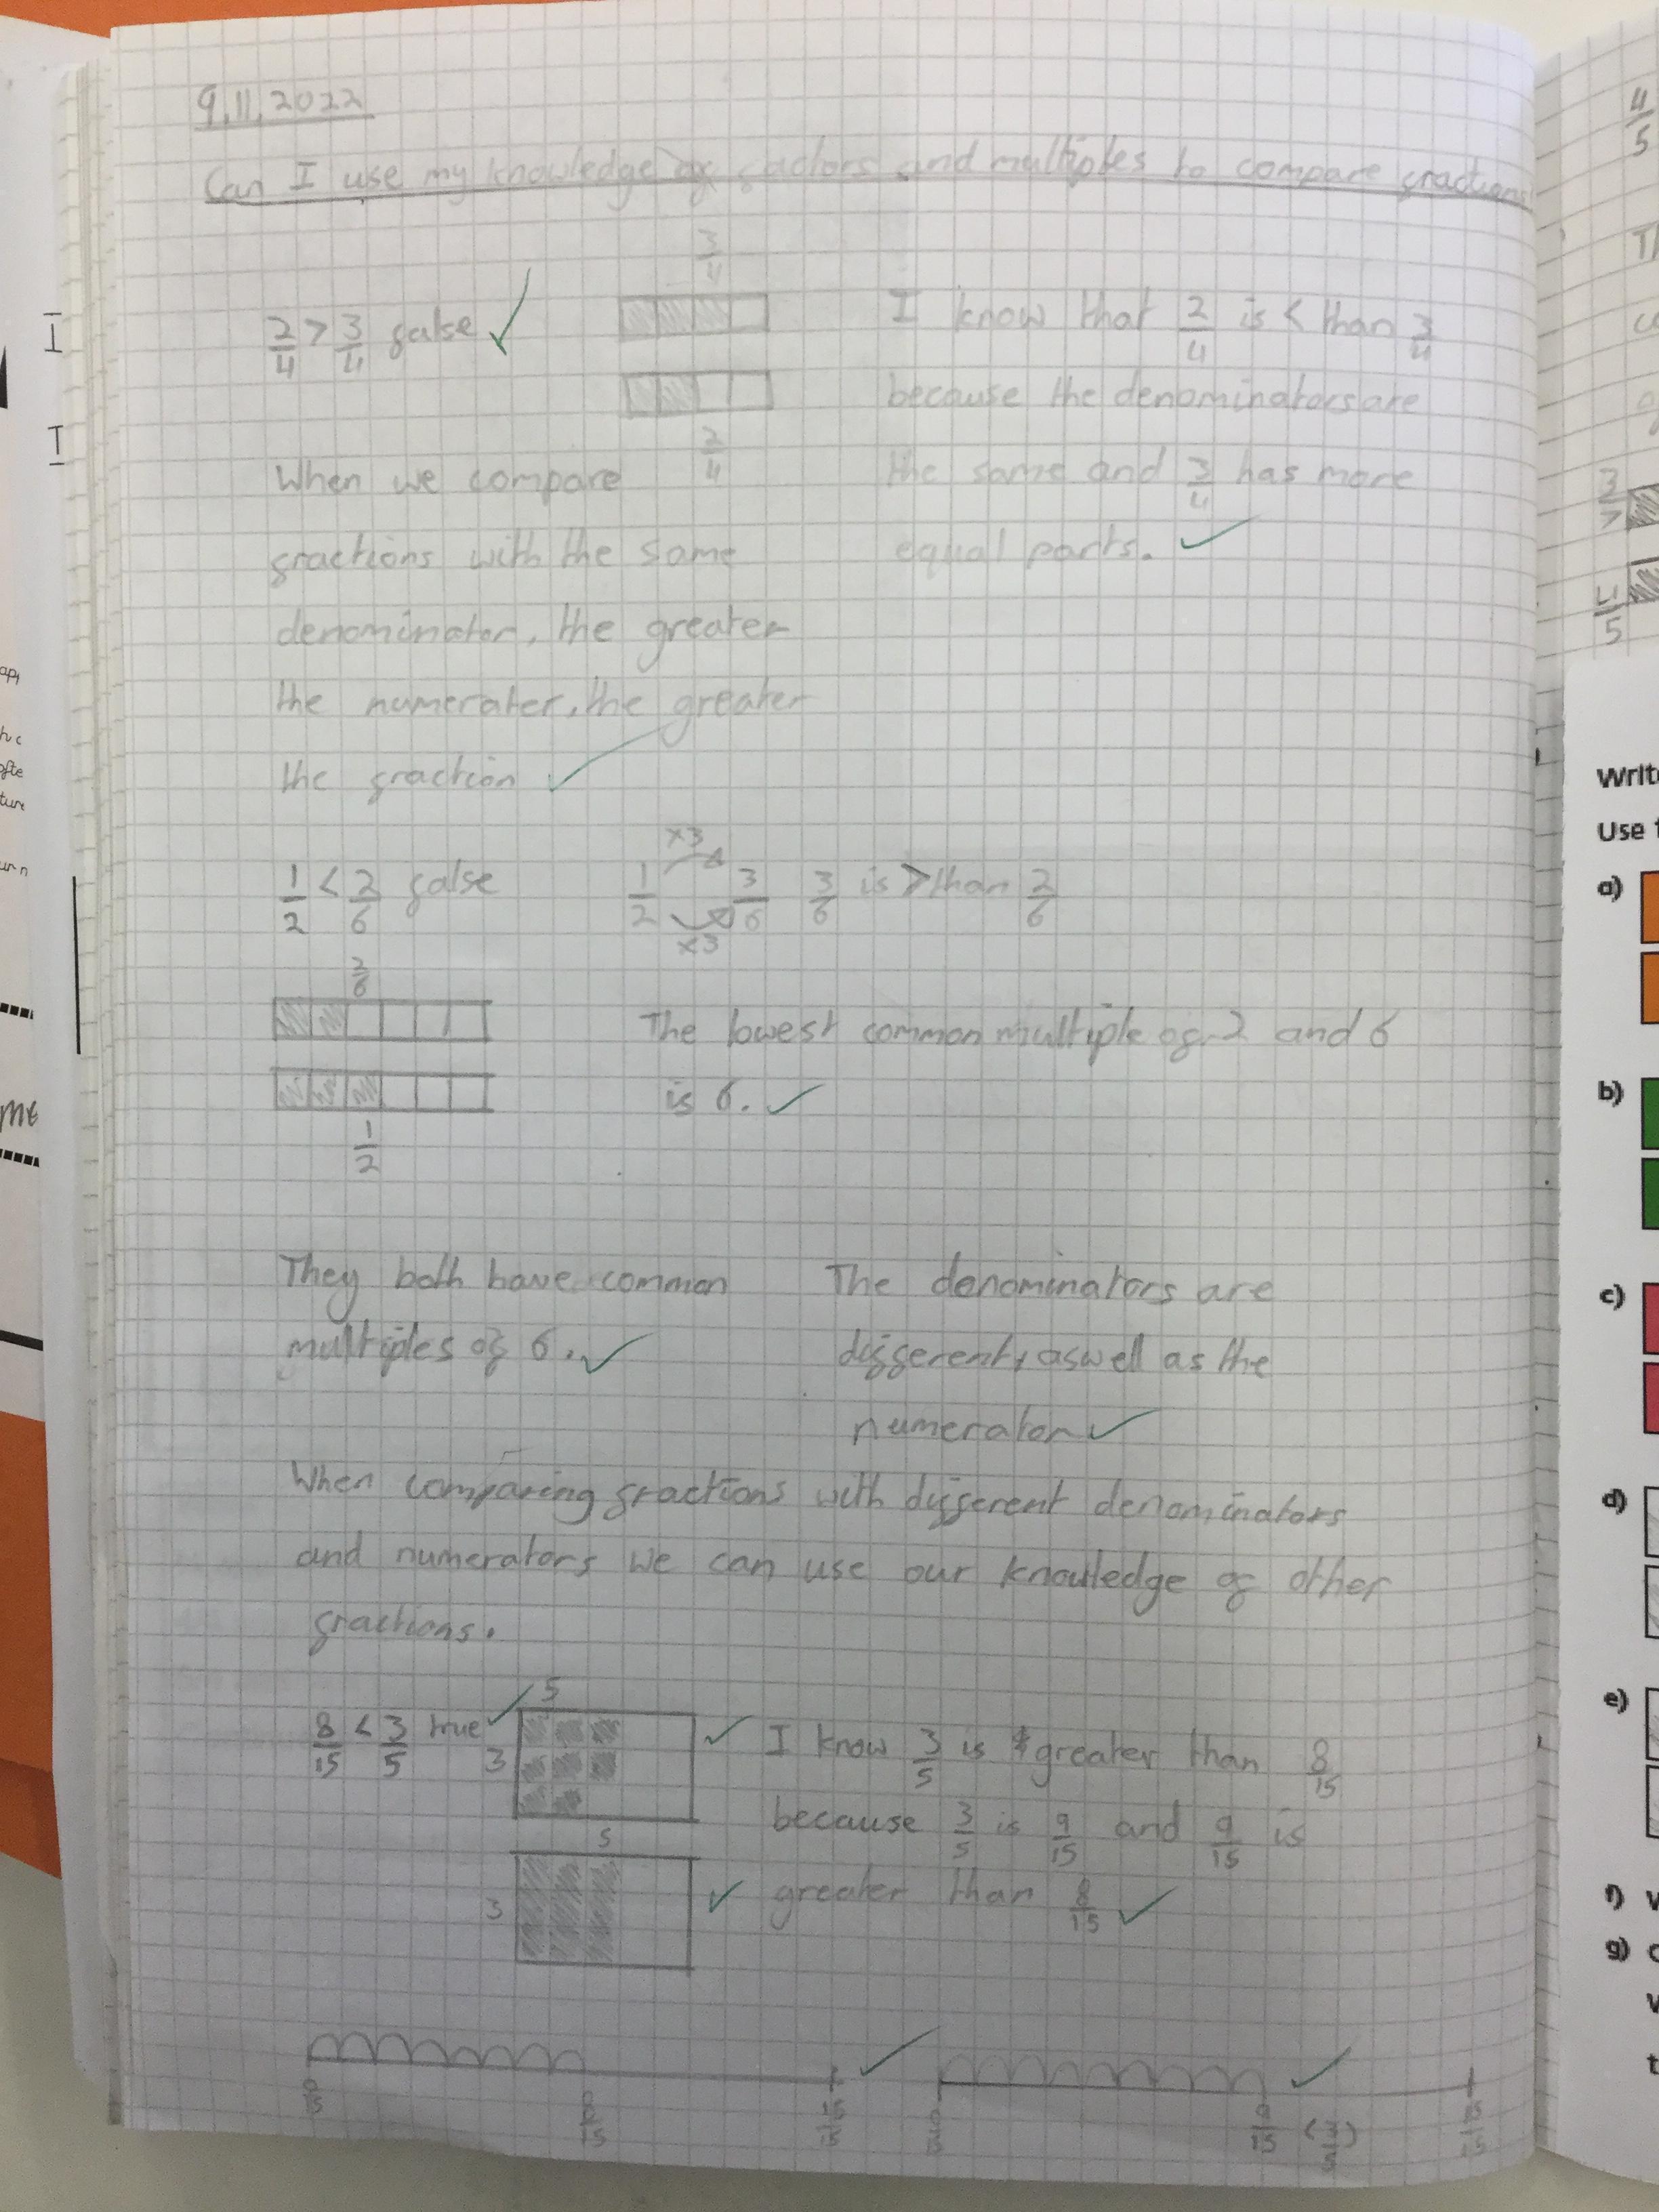 9.11.2022
Can I use my knowledge of factors and multiples to compare fractions
2/4 > 3/4 false
3/4
2/4
I know that 2/4 is < than 3/4
because the denominators are
the same and 3/4 has more
equal parts.
When we compare
fractions with the same
denominator, the greater
the numerater, the greater
the fraction
1/2 < 2/6 false
1/2 ×3 ×3 3/6 3/6 is > than 2/6
2/6
1/2
The lowest common multiple of 2 and 6
is 6.
They both have common
multiples of 6.
The denominators are
different, aswell as the
numerator
When comparing fractions with different denominators
and numerators we can use our knowledge of other
fractions.
8/15 < 3/5 true
5
3
5
3
I know 3/5 is greater than 8/15
because 3/5 is 9/15 and 9/15 is
greater than 8/15
8/15 15/15
9/15 (3/5) 15/15
4/5
3/7
4/5
Use
a)
b)
c)
d)
e)
f)
g)